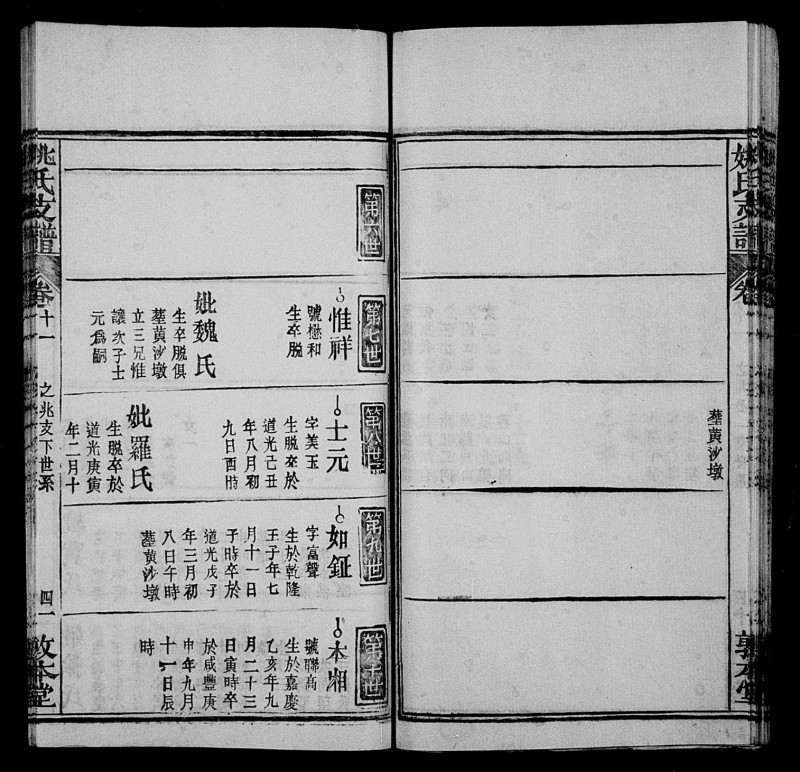 墓黄沙墩
第六世
第七世
惟祥
號懋和
生卒脱
妣魏氏
生卒脱俱
墓黄沙墩
立三兄惟
讓次子士
元為嗣
第八世
士元
字美玉
生脱卒於
道光己丑
年八月初
九日酉時
妣羅氏
生脱卒於
道光庚寅
年二月十
第九世
如鉦
字富聲
生於乾隆
壬子年七
月十一日
子時卒於
道光戊子
年三月初
八日午時
墓黄沙墩
第十世
本湘
號聯高
生於嘉慶
乙亥年九
月二十三
日寅時卒
於咸豐庚
申年九月
十一日辰
時
姚氏支譜
卷十一
之兆亥下世系
四
敦本堂